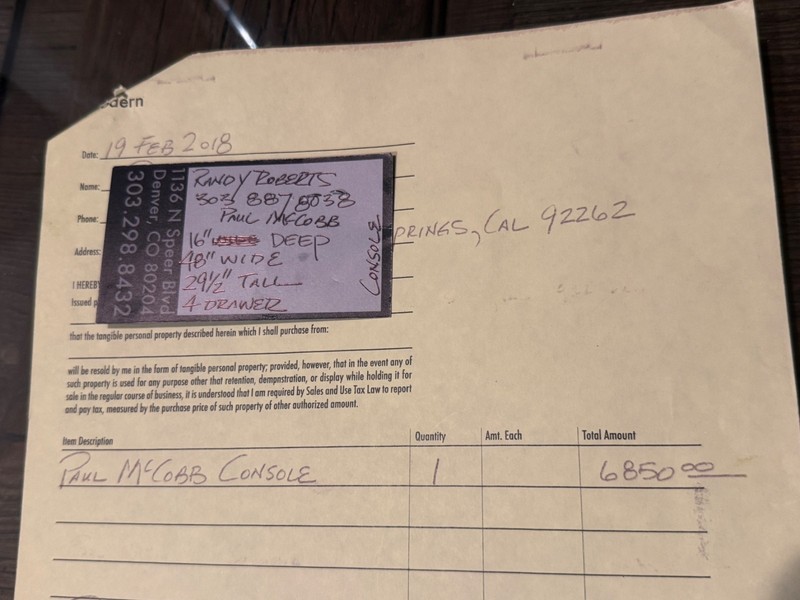 dern
Date: 19 FEB 2018
Name:
Phone:
Address:
PRINGS, CAL 92262
I HEREB
Issued p
1136 N Speer Blvd
Denver, CO 80204
303.298.8432
RANDY ROBERTS
303 887 8038
PAUL MCCOBB
16" DEEP
48" WIDE
29 1/2" TALL
4 DRAWER
CONSOLE
that the tangible personal property described herein which I shall purchase from:
will be resold by me in the form of tangible personal property; provided, however, that in the event any of
such property is used for any purpose other that retention, dempnstration, or display while holding it for
sale in the regular course of business, it is understood that I am required by Sales and Use Tax Law to report
and pay tax, measured by the purchase price of such property of other authorized amount.
Item Description Quantity Amt. Each Total Amount
PAUL MCCOBB CONSOLE 1 6850 00